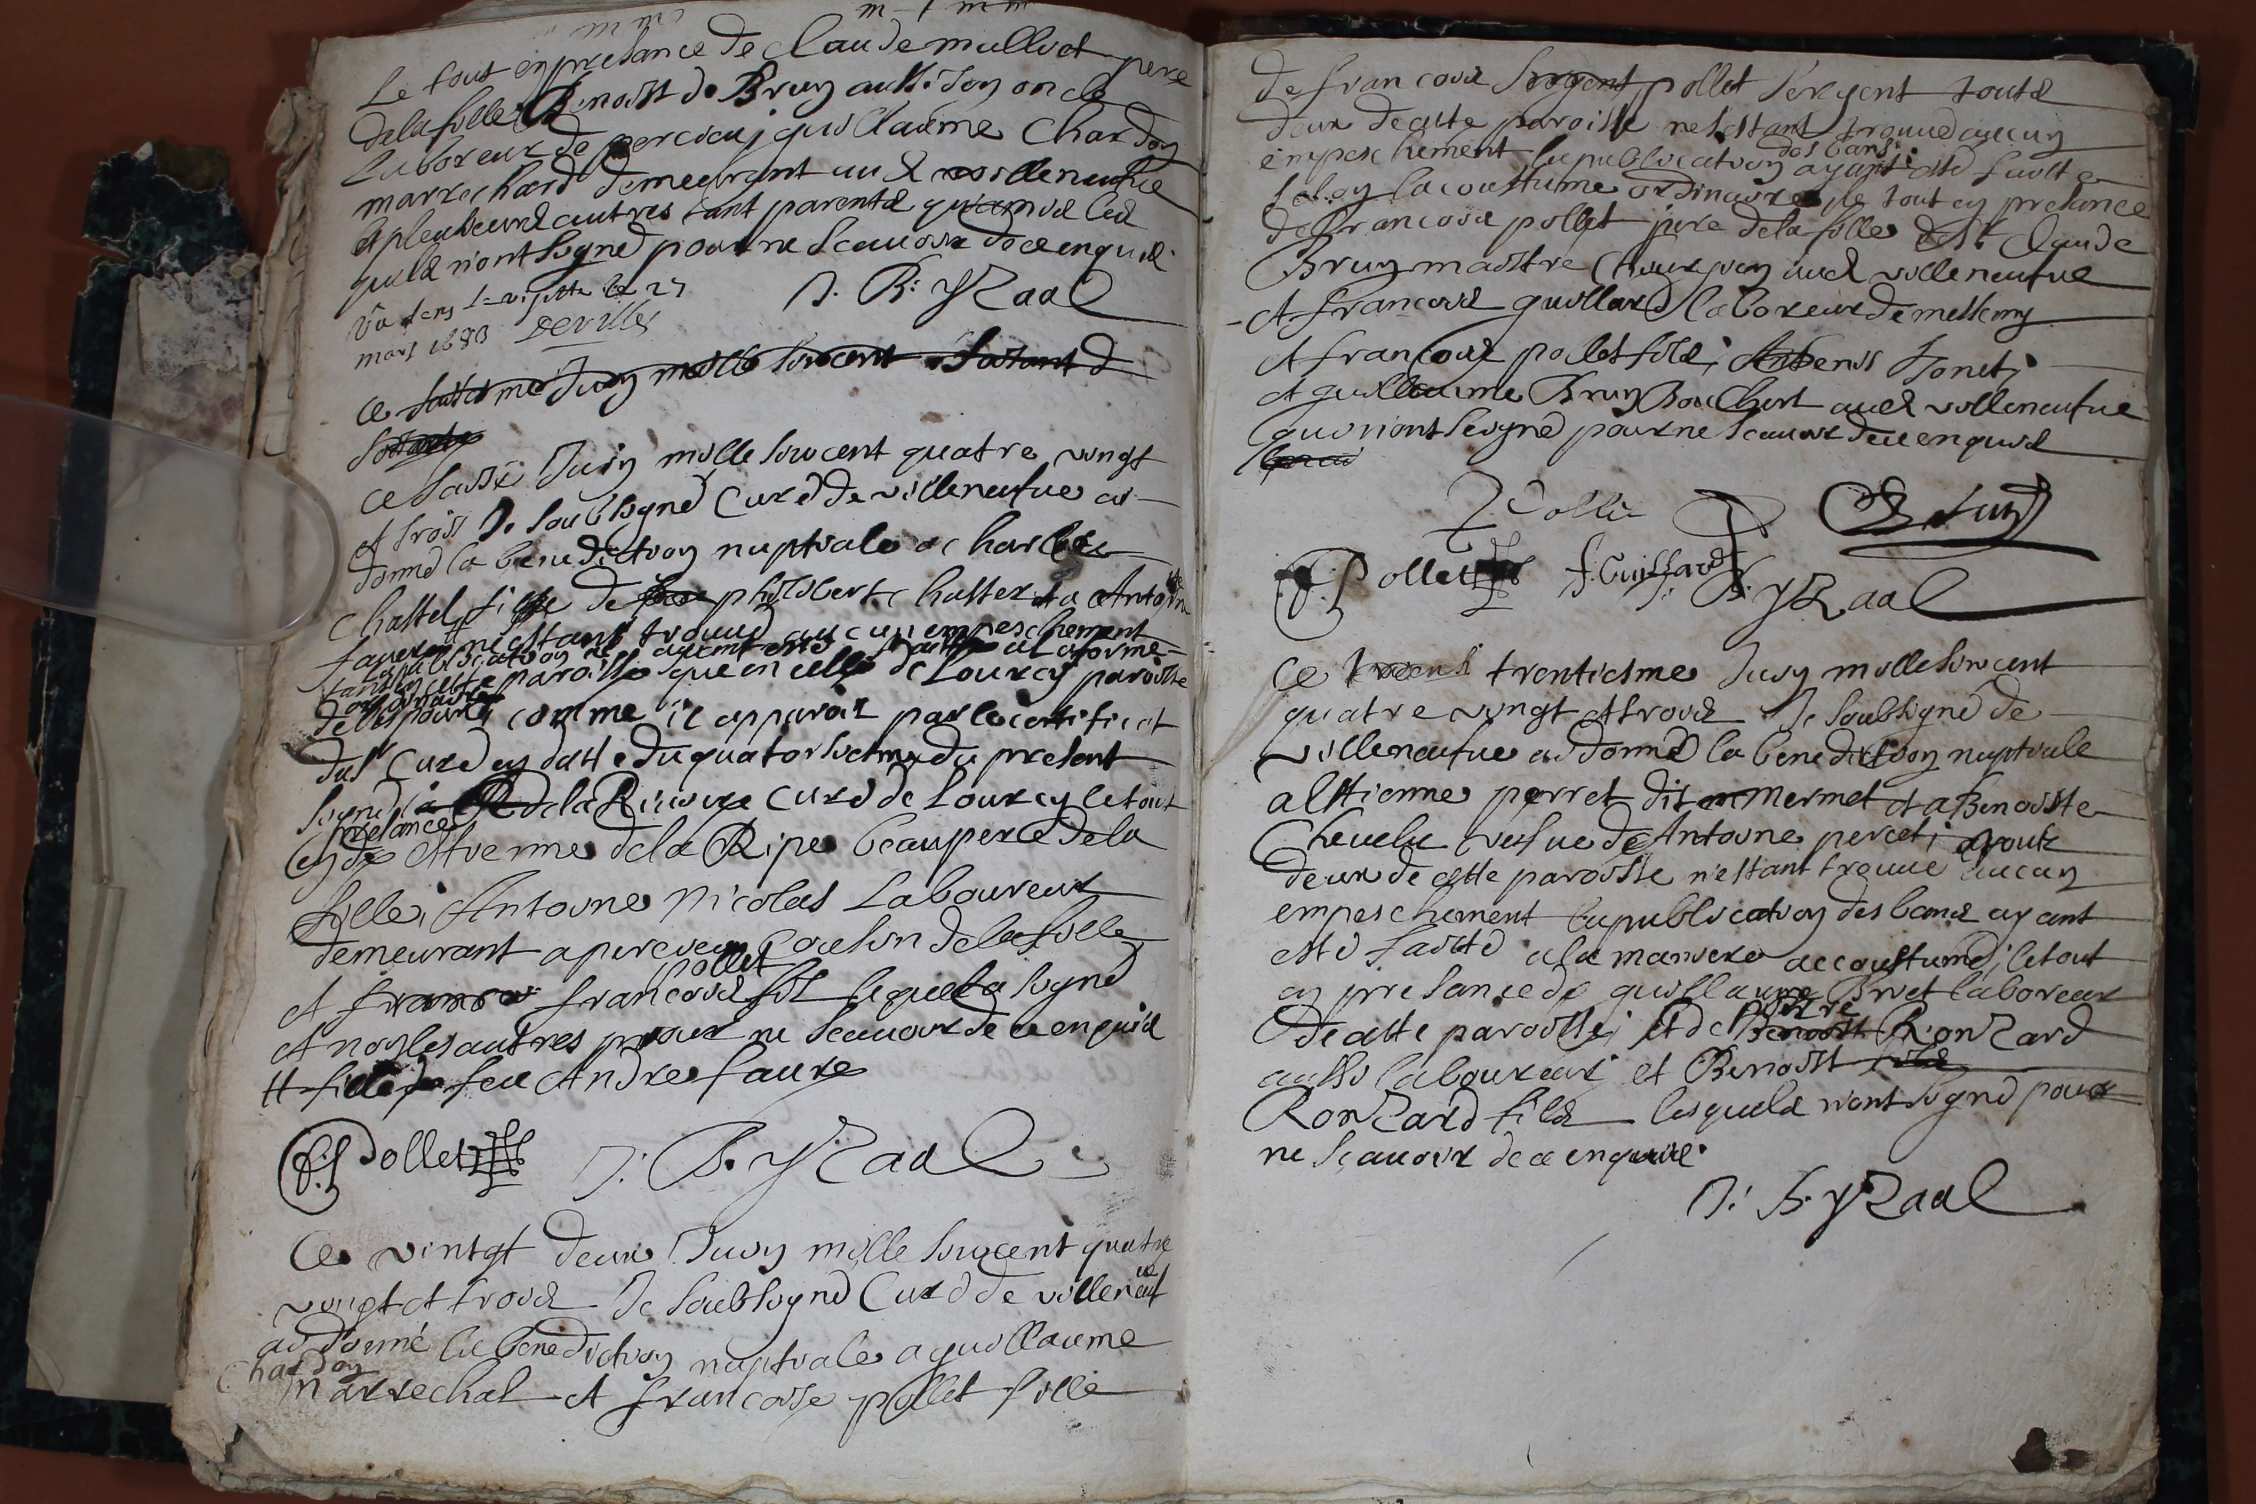 Le tout en presance de Claude mulliet pere
de la fille Benoist de Brun aussi son oncle
laboreur de percieu; guillaume Chardon
marrechard demeurant aud villeneufue
et pleuseurs autres tant parents qu'amis les
quels n'ont signé pour ne scauoir de ce enquis.
J. B. yzaac
Vu dans la visitte le 27
mars 1683 Deville
ce juin mille sixcent soixante
ce saise Juin mille sixcent quatre vingt
et trois Je soubsigné Curé de villeneufue ai
donné la benediction nuptiale a charles
Chattel fils de philibert chattel et a Antoinette
faure n'estant trouué aucun empeschement
la publication ayant esté faitte a la forme
ordinaire
tant en cette paroisse que en celle de Lourcy paroisse
de l'espouse comme il apparoir par le certificat
dud Curé en datte du quatorsiesme du present
signé de la Riuoire Curé de Lourcy le tout
en presance de Etienne de la Ripe beaupere de la
fille; Antoine Nicolas Laboureur
demeurant a percieu Cousin de la fille
et francois pollet fils lequel a signé
et non les autres pour ne scauoir de ce enquis
# fille de feu Andre faure
F. Pollet J. B. yzaac
Ce vintgt deux Juin mille sixcent quatre
vingt et trois Je soubsigné Curé de villeneufue
ai donné la benediction nuptiale a guillaume
Chardon
marrechal et francoise pollet fille
de francois sergent pollet sergent touts
deux de cette paroisse n'estant trouué aucun
empeschement la publication des bans ayant esté faitte
selon la coustume ordinaire le tout en presance
de francois pollet pere de la fille de Sr Claude
Brun maistre Chirurgien aud villeneufue
et francois guillard laboreur de messimy
et francois pollet fils;
et guillaume Brun Bouchert aud villeneufue
qui n'ont signé pour ne scauoir de ce enquis
Pollet
F. Pollet f. Guillard J. B. yzaac
Ce trentiesme Juin mille sixcent
quatre vingt et trois Je soubsigné de
villeneufue ai donné la benediction nuptiale
a Estienne perret dit mermet et a Benoiste
Cheuelu vesfue de Antoine percet; touts
deux de cette paroisse n'estant trouué aucun
empeschement la publication des bans ayant
esté faitte a la maniere accoustumé; le tout
en presance de guillaume Bruet laboreur
de cette paroisse; et de pierre Benoist Ronzard
aussi laboureur; et Benoist
Ronzard fils lesquels n'ont signé pour
ne scauoir de ce enquis.
J. B. yzaac